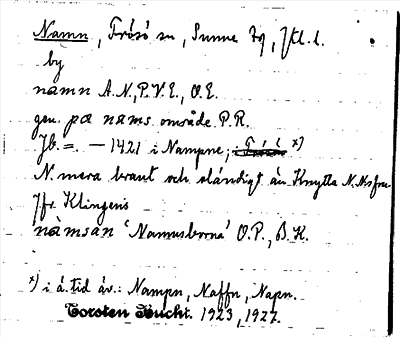 Namn, Frösö sn, Sunne tg, Jtl. l.
by
namn A.N., P.V.E., O.E.
gen. pœ nams område P.R.
Jb. = – 1421 i Nampne, x)
N. mera brant och ständigt än Knytta N. Msfn
Jfr Klingens
nàmsan 'Namusborna' O.P., B.K.
x) i ä. tid äv.: Nampn, Naffn, Napn.
Torsten Bucht. 1923, 1927.